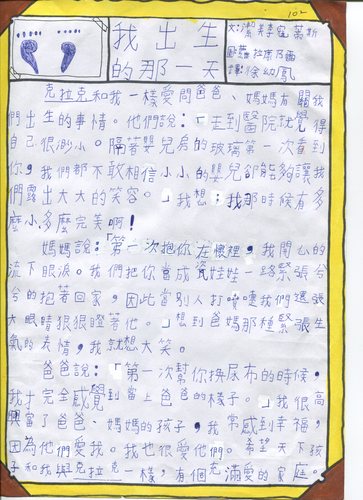 102
我出生
的那一天
文:潔
蘿拉
譯:徐幼鳳
克拉克和我一樣愛問爸爸、媽媽有關我
們出生的事情。他們說:「走到醫院就覺得
自己很渺小。隔著嬰兒房的玻璃第一次看到
你,我們都不敢相信小小的嬰兒卻能夠讓我
們露出大大的笑容。」我想:我那時候有多
麼小多麼完美啊!
媽媽說:「第一次抱你在懷裡,我開心的
流下眼淚。我們把你當成瓷娃娃一路緊張兮
兮的抱著回家,因此當別人打噴嚏我們還張
大眼睛狠狠瞪著他。」想到爸媽那種緊張生
氣的表情,我就想大笑。
爸爸說:「第一次幫你換尿布的時候,
我十完全感覺到當上爸爸的樣子。」我很高
興當了爸爸、媽媽的孩子,我常感到幸福,
因為他們愛我。我也很愛他們。希望天下孩
子和我與克拉克一樣,有個充滿愛的家庭。